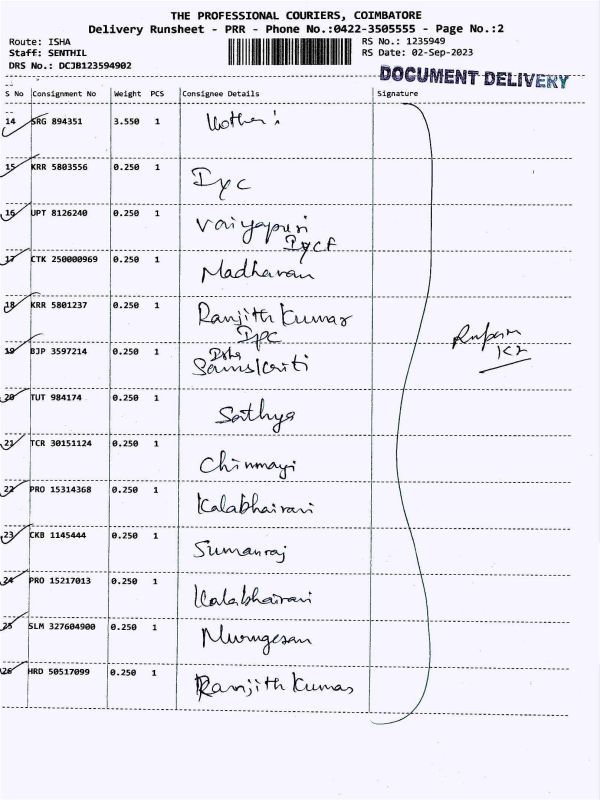 THE PROFESSIONAL COURIERS, COIMBATORE
Delivery Runsheet - PRR - Phone No.:0422-3505555 - Page No.:2
Route: ISHA
Staff: SENTHIL
DRS No.: DCJB123594902
RS No.: 1235949
RS Date: 02-Sep-2023
DOCUMENT DELIVERY
S No Consignment No Weight PCS Consignee Details Signature
14 SRG 894351 3.550 1
15 KRR 5803556 0.250 1 Iyc
16 UPT 8126240 0.250 1 Vaiyapuri
Iycf
17 CTK 250000969 0.250 1 Madhavan
18 KRR 5801237 0.250 1 Ranjith Kumar
Iyc
19 BJP 3597214 0.250 1 Isha
Samskriti
20 TUT 984174 0.250 1 Sathya
21 TCR 30151124 0.250 1 Chinmayi
22 PRO 15314368 0.250 1 Kalabhairavi
23 CKB 1145444 0.250 1 Sumanraj
24 PRO 15217013 0.250 1 Kalabhairavi
25 SLM 327604900 0.250 1 Murugesan
26 HRD 50517099 0.250 1 Ranjith Kumar